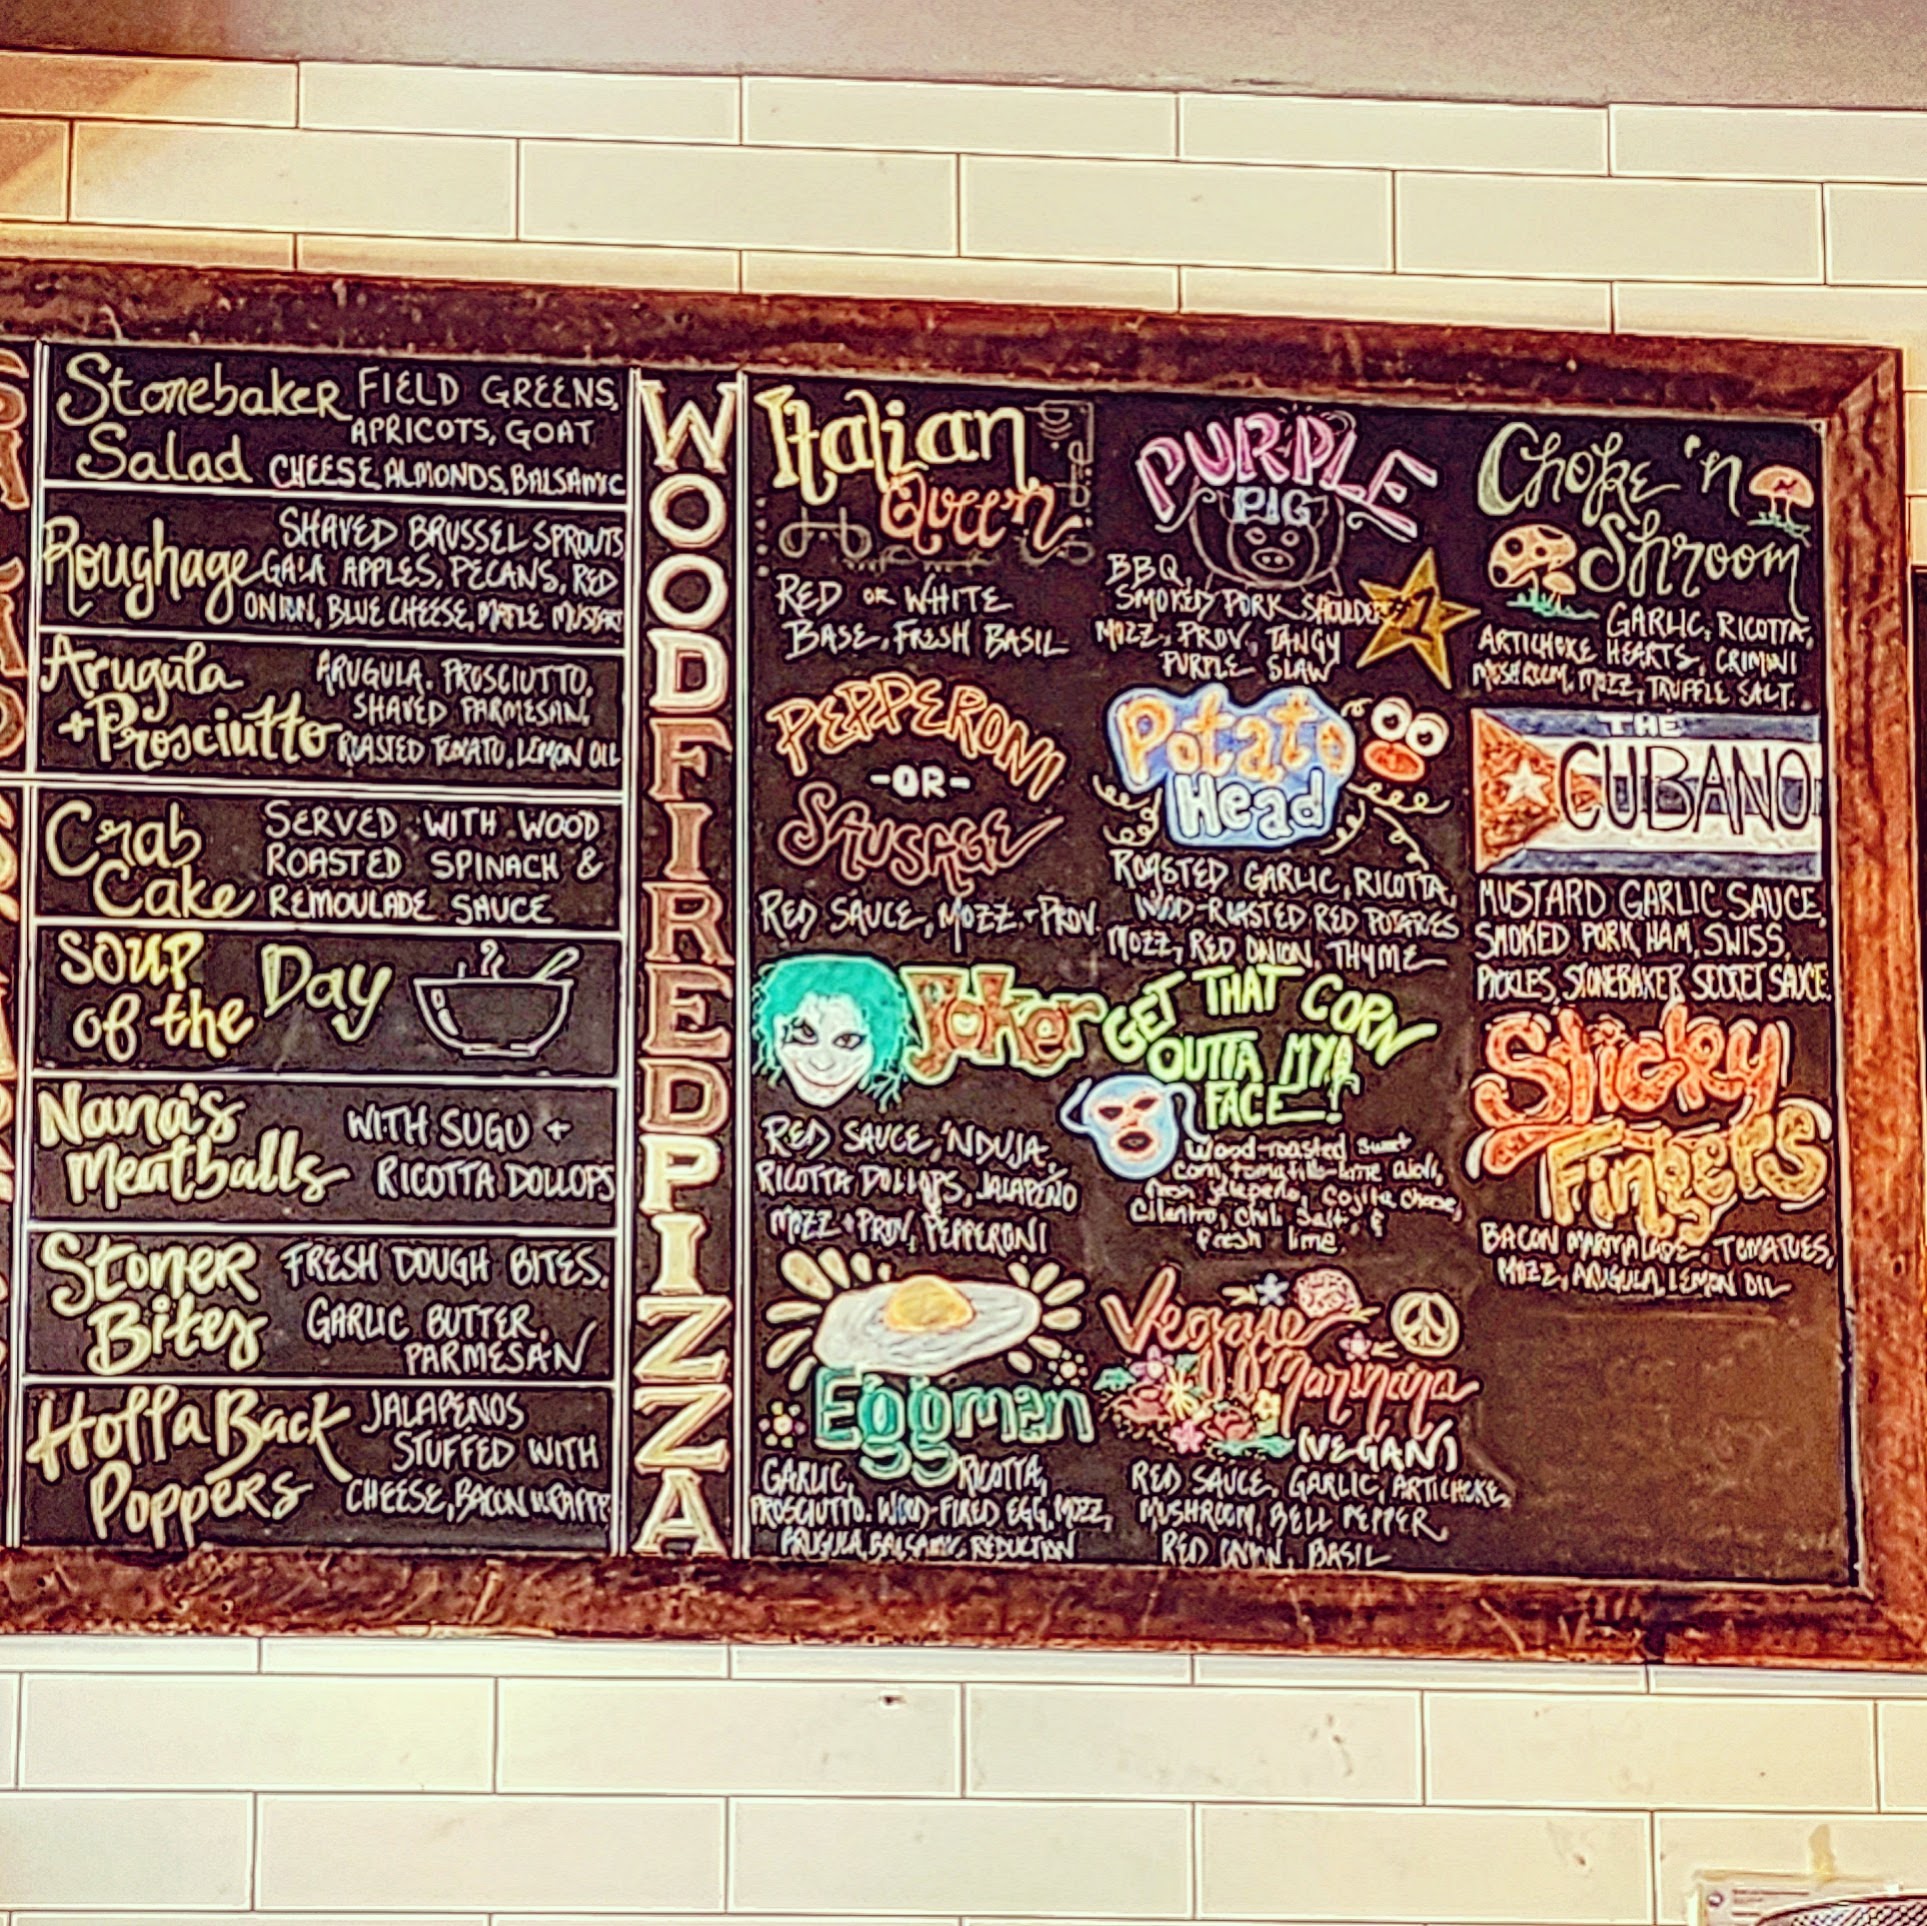 Stonebaker Salad
FIELD GREENS,
APRICOTS, GOAT
CHEESE, ALMONDS, BALSAMIC
Roughage
SHAVED BRUSSEL SPROUTS
GALA APPLES, PECANS, RED
ONION, BLUE CHEESE, MAPLE MUSTARD
Arugula
+ Prosciutto
ARUGULA, PROSCIUTTO,
SHAVED PARMESAN,
ROASTED TOMATO, LEMON OIL
Crab
Cake
SERVED WITH WOOD
ROASTED SPINACH &
REMOULADE SAUCE
SOUP
of the
Day
Nana's
Meatballs
WITH SUGO +
RICOTTA DOLLOPS
Stoner
Bites
FRESH DOUGH BITES.
GARLIC BUTTER,
PARMESAN
Holla Back
Poppers
JALAPENOS
STUFFED WITH
CHEESE, BACON
WOOD FIRED PIZZA
Italian
Queen
RED OR WHITE
BASE, FRESH BASIL
PEPPERONI
-OR-
SAUSAGE
RED SAUCE, MOZZ + PROV.
Joker
RED SAUCE, 'NDUJA,
RICOTTA DOLLOPS, JALAPEÑO
MOZZ + PROV, PEPPERONI
Eggman
GARLIC, RICOTTA,
PROSCIUTTO, WOOD-FIRED EGG, MOZZ,
ARUGULA, BALSAMIC REDUCTION
PURPLE
PIG
BBQ,
SMOKED PORK SHOULDER
MOZZ, PROV, TANGY
PURPLE SLAW
#1
Potato
Head
ROASTED GARLIC, RICOTTA,
WOOD-ROASTED RED POTATOES
MOZZ, RED ONION, THYME
GET THAT CORN
OUTTA MYA
FACE!
Wood-roasted sweet
corn, tomatillo-lime aioli,
jalapeño, cojita cheese,
cilantro, chili salt, &
fresh lime.
Veggie
Marinara
(VEGAN)
RED SAUCE, GARLIC, ARTICHOKE,
MUSHROOM, BELL PEPPER
RED ONION, BASIL
Choke 'n
Shroom
GARLIC, RICOTTA,
ARTICHOKE HEARTS, CRIMINI
MUSHROOM, MOZZ, TRUFFLE SALT.
THE
CUBANO
MUSTARD GARLIC SAUCE,
SMOKED PORK, HAM, SWISS,
PICKLES, STONEBAKER SECRET SAUCE
Sticky
Fingers
BACON MARMALADE, TOMATOES,
MOZZ, ARUGULA, LEMON OIL